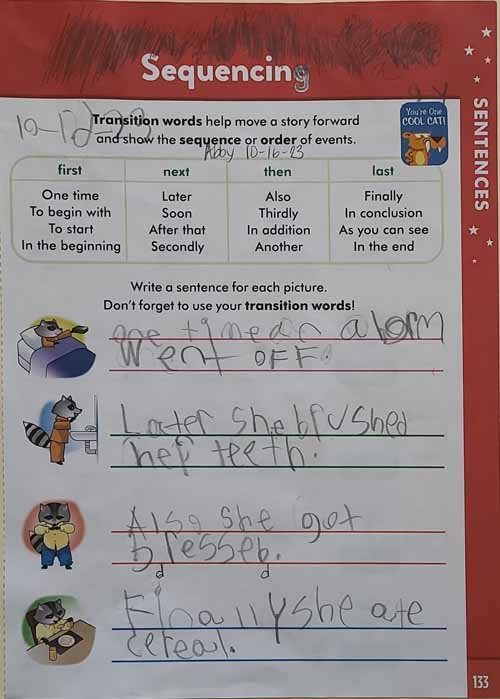 Sequencing
You're One
COOL CAT!
SENTENCES
Transition words help move a story forward
10-12-23
and show the sequence or order of events.
Abby 10-16-23
first next then last
One time Later Also Finally
To begin with Soon Thirdly In conclusion
To start After that In addition As you can see
In the beginning Secondly Another In the end
Write a sentence for each picture.
Don't forget to use your transition words!
one time an alorm
went OFF.
Later she brushed
her teeth.
Also she got
bresseb.
d d
Finally she ate
cereal.
133